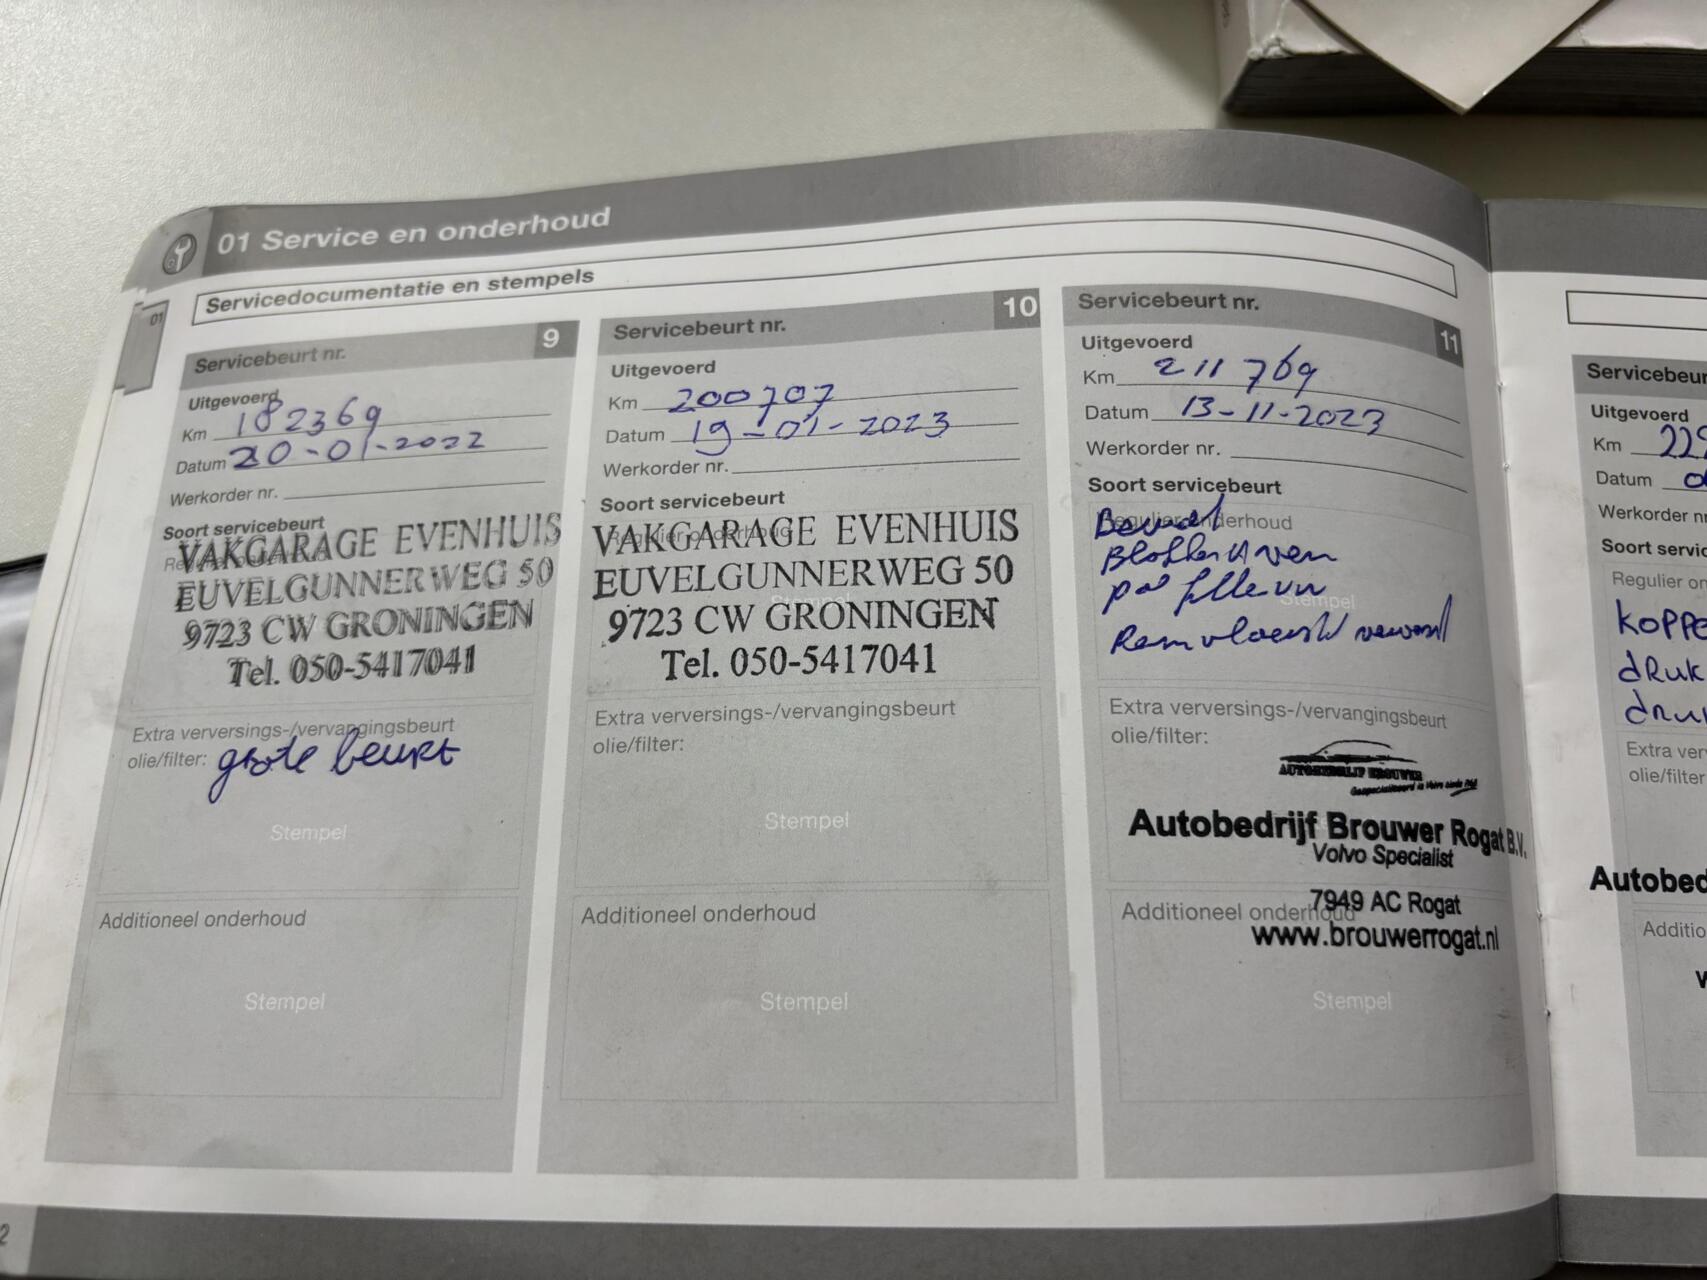 01 Service en onderhoud
Servicedocumentatie en stempels
01
Servicebeurt nr. 9
Uitgevoerd
Km 182369
Datum 20-01-2022
Werkorder nr.
Soort servicebeurt
VAKGARAGE EVENHUIS
EUVELGUNNERWEG 50
9723 CW GRONINGEN
Tel. 050-5417041
Extra verversings-/vervangingsbeurt
olie/filter: grote beurt
Stempel
Additioneel onderhoud
Stempel
Servicebeurt nr. 10
Uitgevoerd
Km 200707
Datum 19-01-2023
Werkorder nr.
Soort servicebeurt
Regulier onderhoud
VAKGARAGE EVENHUIS
EUVELGUNNERWEG 50
9723 CW GRONINGEN
Tel. 050-5417041
Stempel
Extra verversings-/vervangingsbeurt
olie/filter:
Stempel
Additioneel onderhoud
Stempel
Servicebeurt nr. 11
Uitgevoerd
Km 211769
Datum 13-11-2023
Werkorder nr.
Soort servicebeurt
Regulier onderhoud
Stempel
Extra verversings-/vervangingsbeurt
olie/filter:
AUTOBEDRIJF BROUWER
Autobedrijf Brouwer Rogat B.V.
Volvo Specialist
7949 AC Rogat
Additioneel onderhoud
www.brouwerrogat.nl
Stempel
Servicebeur
Uitgevoerd
Km 22
Datum
Werkorder nr
Soort servic
Regulier on
KOPPE
dRUK
dRU
Extra ver
olie/filte
Autobed
Additio
w
2